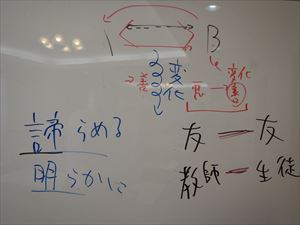 B
変化
変化
諦らめる
明らかに
友 ー 友
教師 ー 生徒